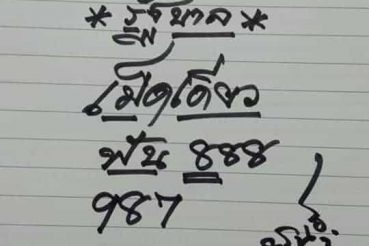 * รัฐบาล *
เม็ดเดียว
ฟัน 888
987